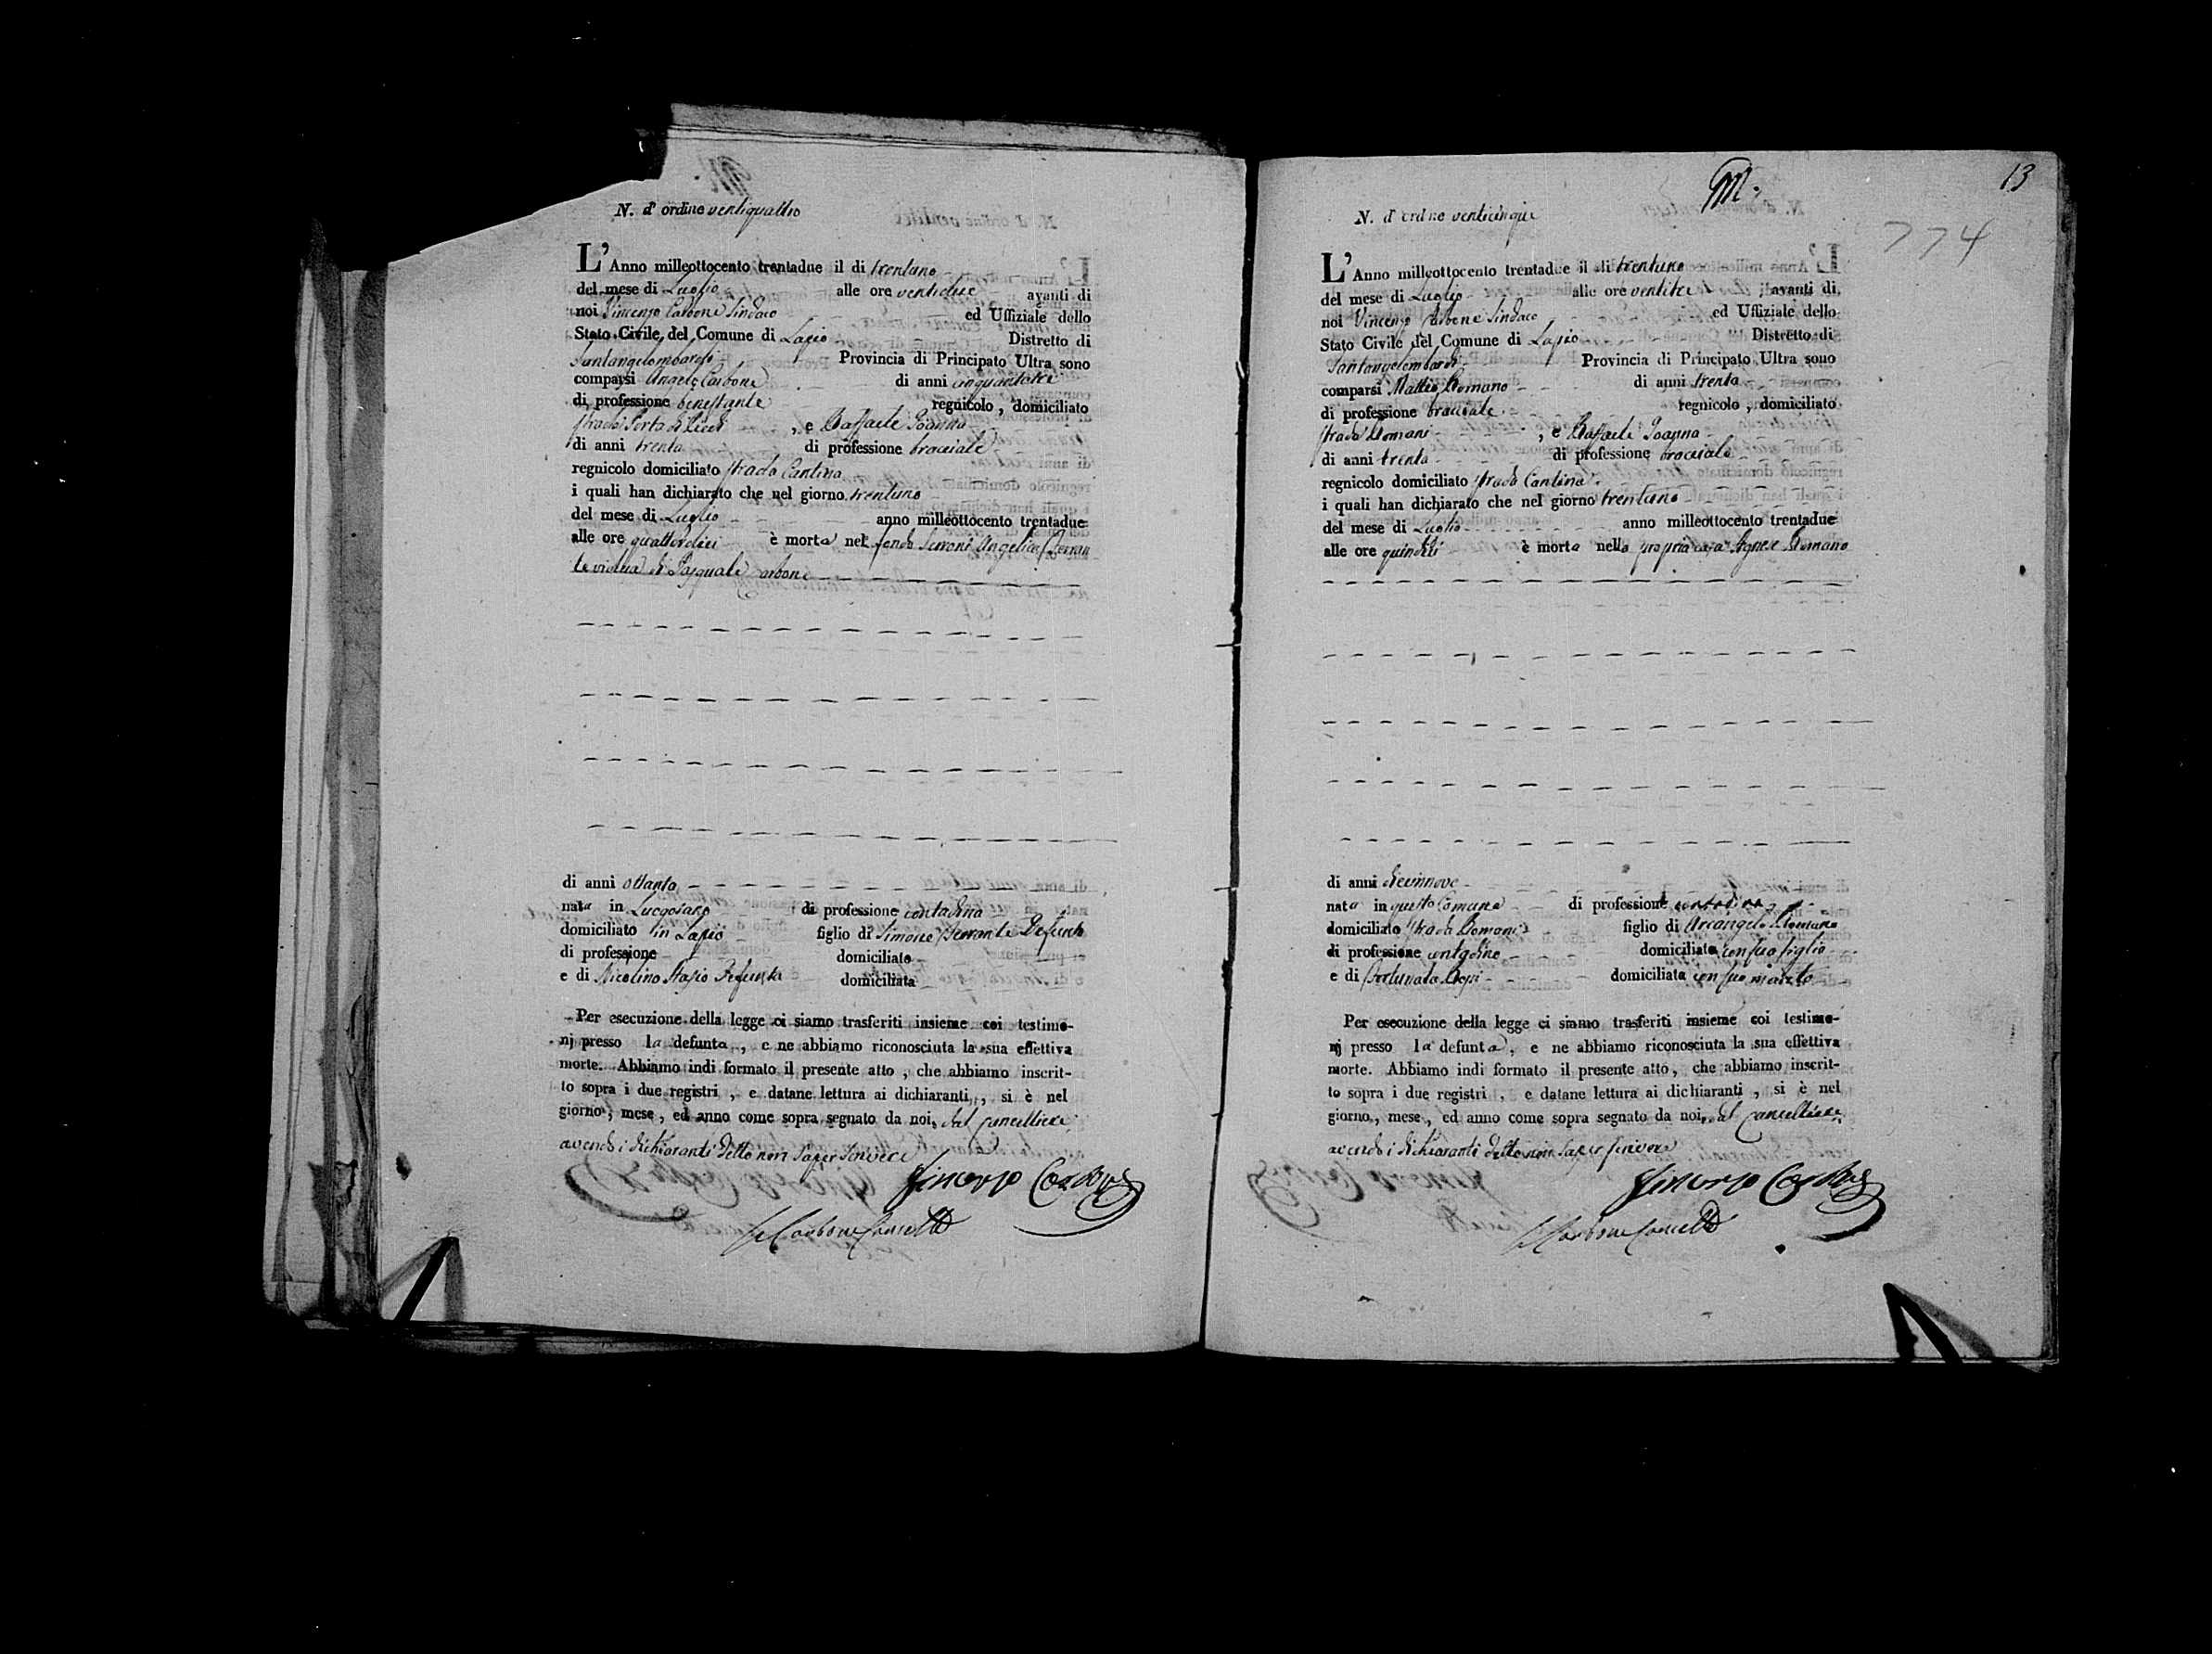 N. d' ordine ventiquattro
L'Anno milleottocento trentadue il di trentuno
del mese di Luglio alle ore ventidue avanti di
noi Vincenzo Carbone Sindaco ed Uffiziale dello
Stato Civile del Comune di Lapio Distretto di
Santangelombardi Provincia di Principato Ultra sono
comparsi Angelo Carbone di anni cinquantatre
di professione benestante regnicolo, domiciliato
strada Porta di , e Raffaele Joanna
di anni trenta di professione bracciale
regnicolo domiciliato strada Cantina
i quali han dichiarato che nel giorno trentuno
del mese di Luglio anno milleottocento trentadue
alle ore quattordici è morta nel fondo Serroni Angelica Ferran
te vidua di Pasquale Carbone
di anni ottanta
nata in Luogosano di professione contadina
domiciliato in Lapio figlio di Simone Ferrante Defunto
di professione domiciliato
e di Nicolina Stasio Defunta domiciliata
Per esecuzione della legge ci siamo trasferiti insieme coi testimo-
nj presso la defunta, e ne abbiamo riconosciuta la sua effettiva
morte. Abbiamo indi formato il presente atto, che abbiamo inscrit-
to sopra i due registri, e datane lettura ai dichiaranti, si è nel
giorno, mese, ed anno come sopra segnato da noi, dal Cancelliere
avendo i dichiaranti detto non saper scrivere
Vincenzo Carbone
Carbone Cancell
M.
13
774
N. d' ordine venticinque
L'Anno milleottocento trentadue il di trentuno
del mese di Luglio alle ore ventitre avanti di
noi Vincenzo Carbone Sindaco ed Uffiziale dello
Stato Civile del Comune di Lapio Distretto di
Santangelombardi Provincia di Principato Ultra sono
comparsi Mattio Romano di anni trenta
di professione bracciale regnicolo, domiciliato
strada Romani , e Raffaele Joanna
di anni trenta di professione bracciale
regnicolo domiciliato strada Cantina
i quali han dichiarato che nel giorno trentuno
del mese di Luglio anno milleottocento trentadue
alle ore quindici è morta nella propria casa Agnese Romano
di anni diecinnove
nata in questo Comune di professione contadina
domiciliato strada Romani figlio di Arcangelo Romano
di professione contadino domiciliato con suo figlio
e di Fortunata domiciliata con suo marito
Per esecuzione della legge ci siamo trasferiti insieme coi testimo-
nj presso la defunta, e ne abbiamo riconosciuta la sua effettiva
morte. Abbiamo indi formato il presente atto, che abbiamo inscrit-
to sopra i due registri, e datane lettura ai dichiaranti, si è nel
giorno, mese, ed anno come sopra segnato da noi, dal Cancelliere
avendo i dichiaranti detto non saper scrivere
Vincenzo Carbone
Carbone Cancell